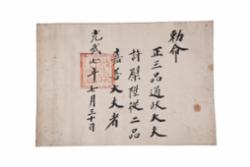 勅命
正三品通政大夫
詩㯳陞從二品
嘉善大夫者
光武七年七月三十日